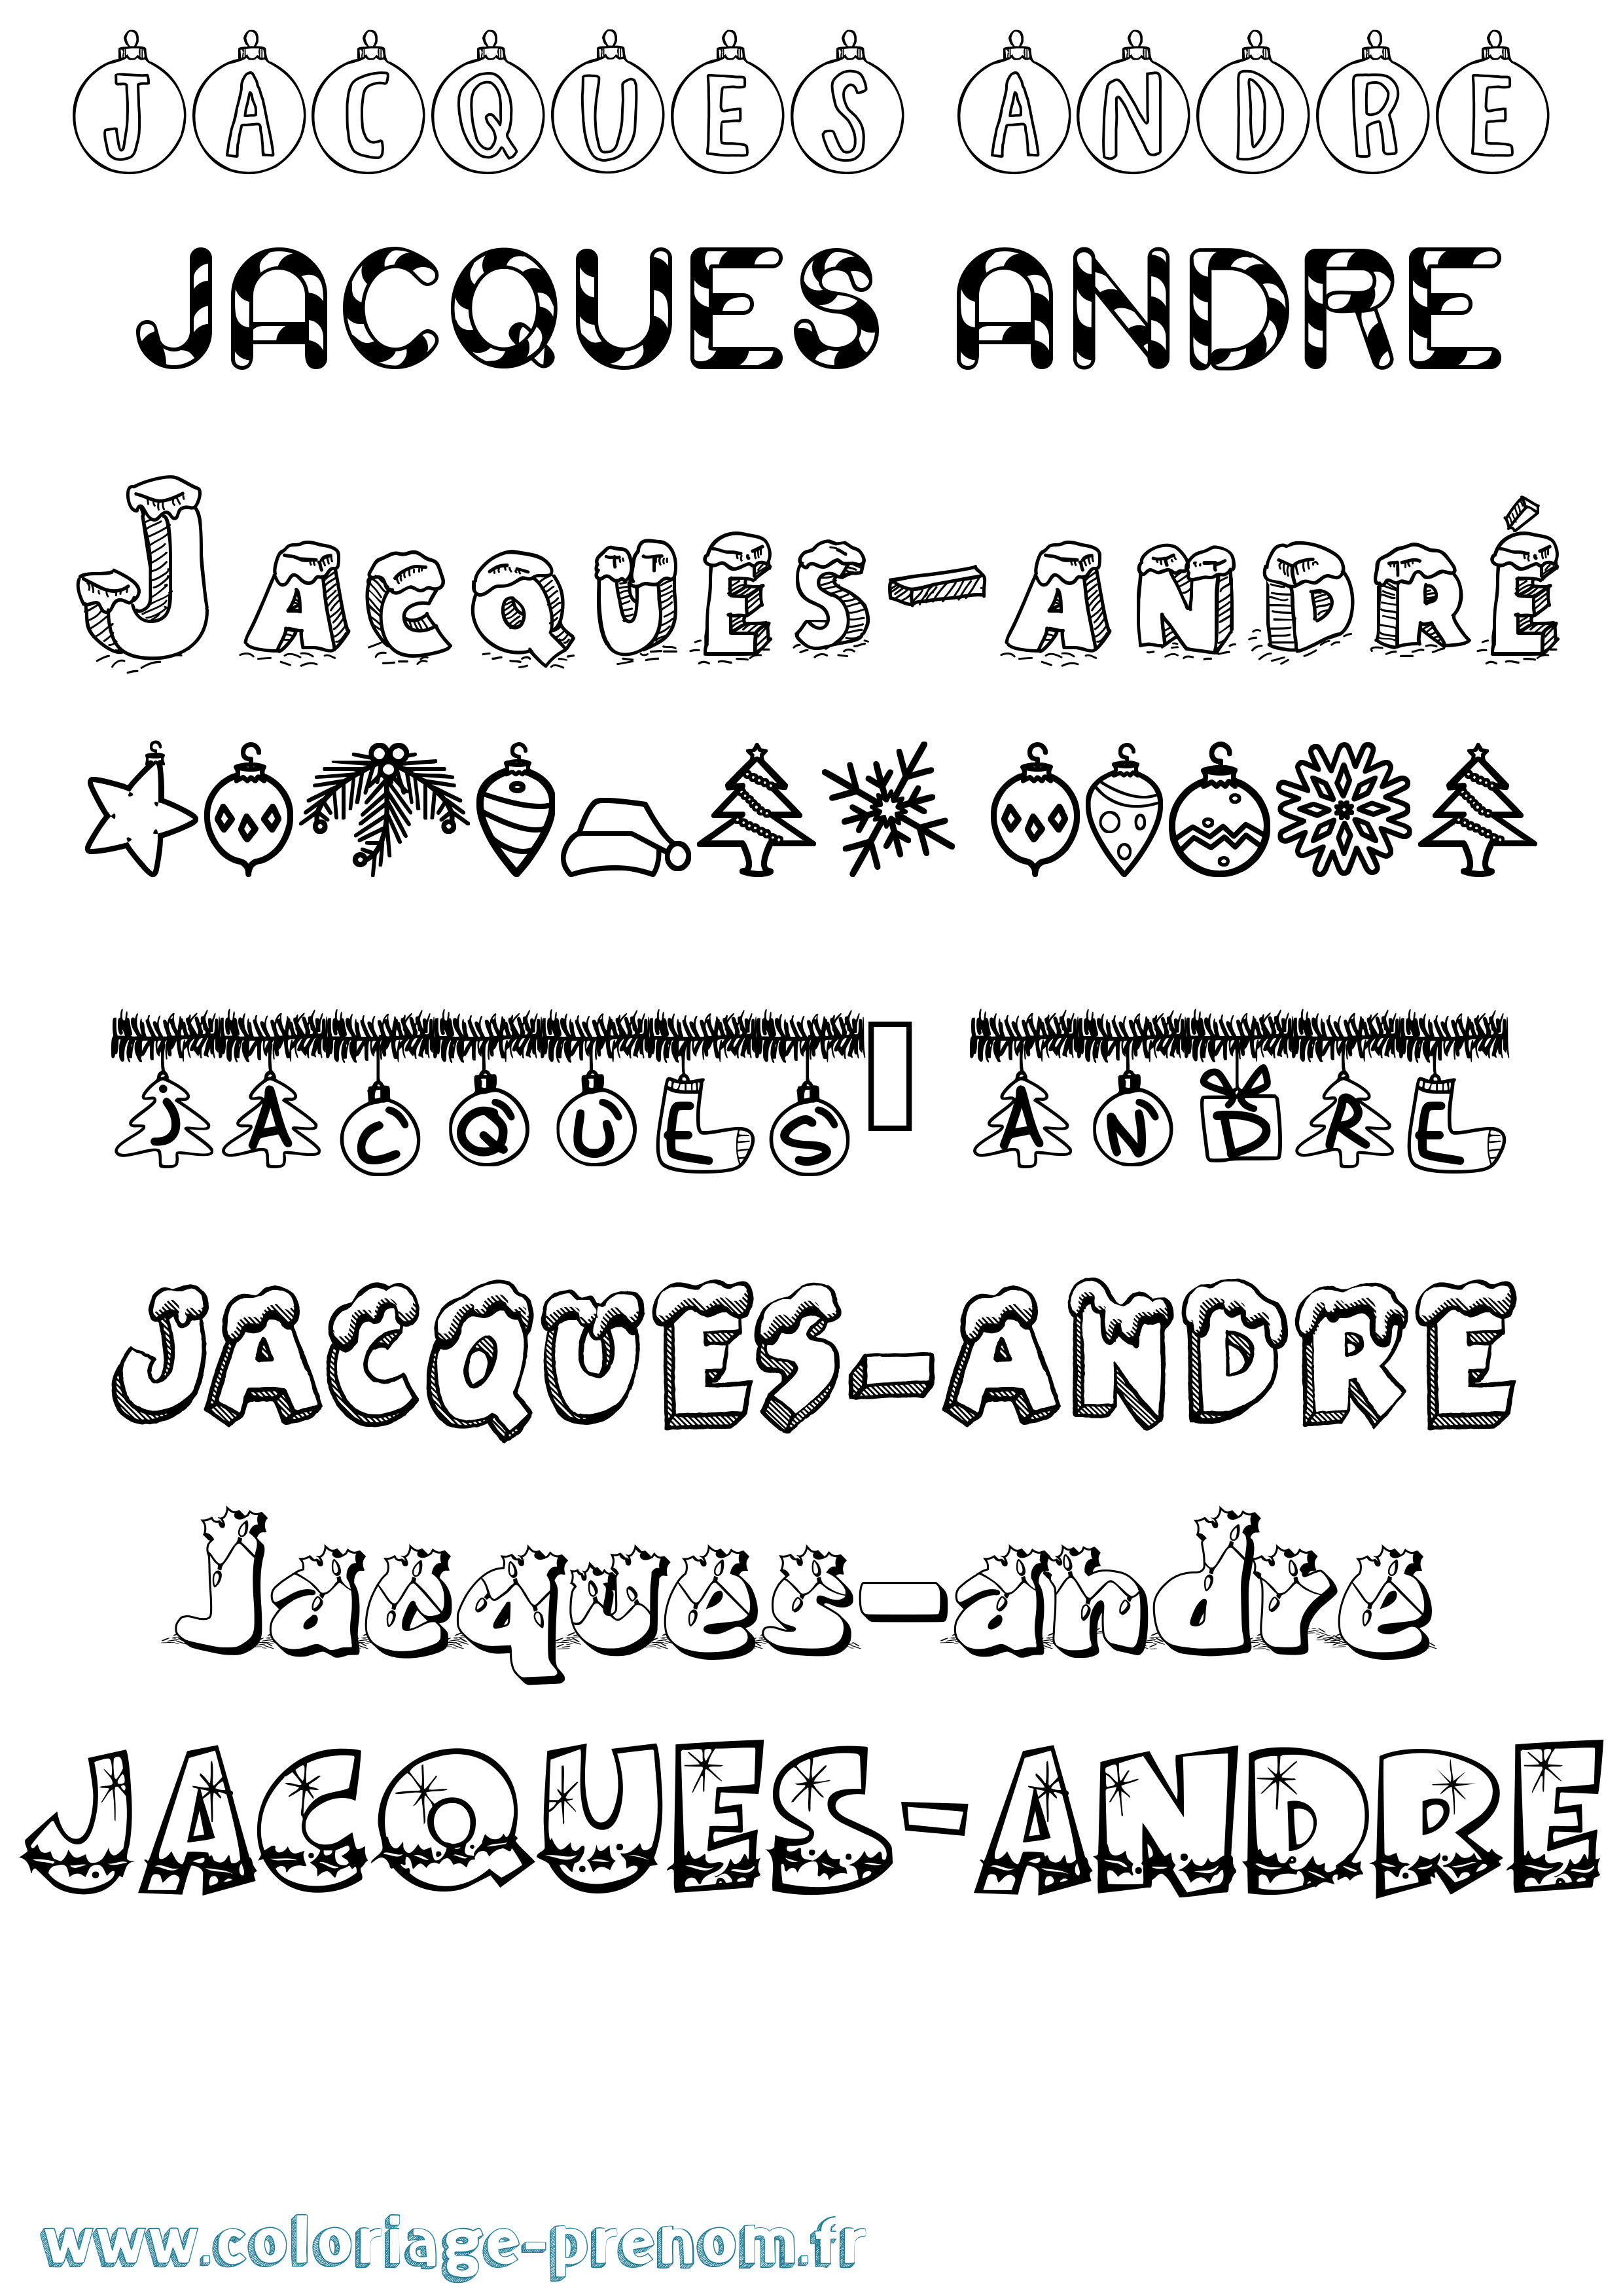 JACQUES ANDRE
JACQUES ANDRE
JACQUES-ANDRÉ
JACQUES ANDRE
JACQUES-ANDRE
Jacques-andre
JACQUES-ANDRE
www.coloriage-prenom.fr